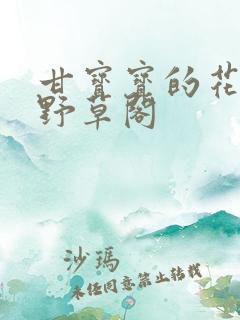 甘寳寳的花
野草閣
沙瑪
未经同意禁止转载